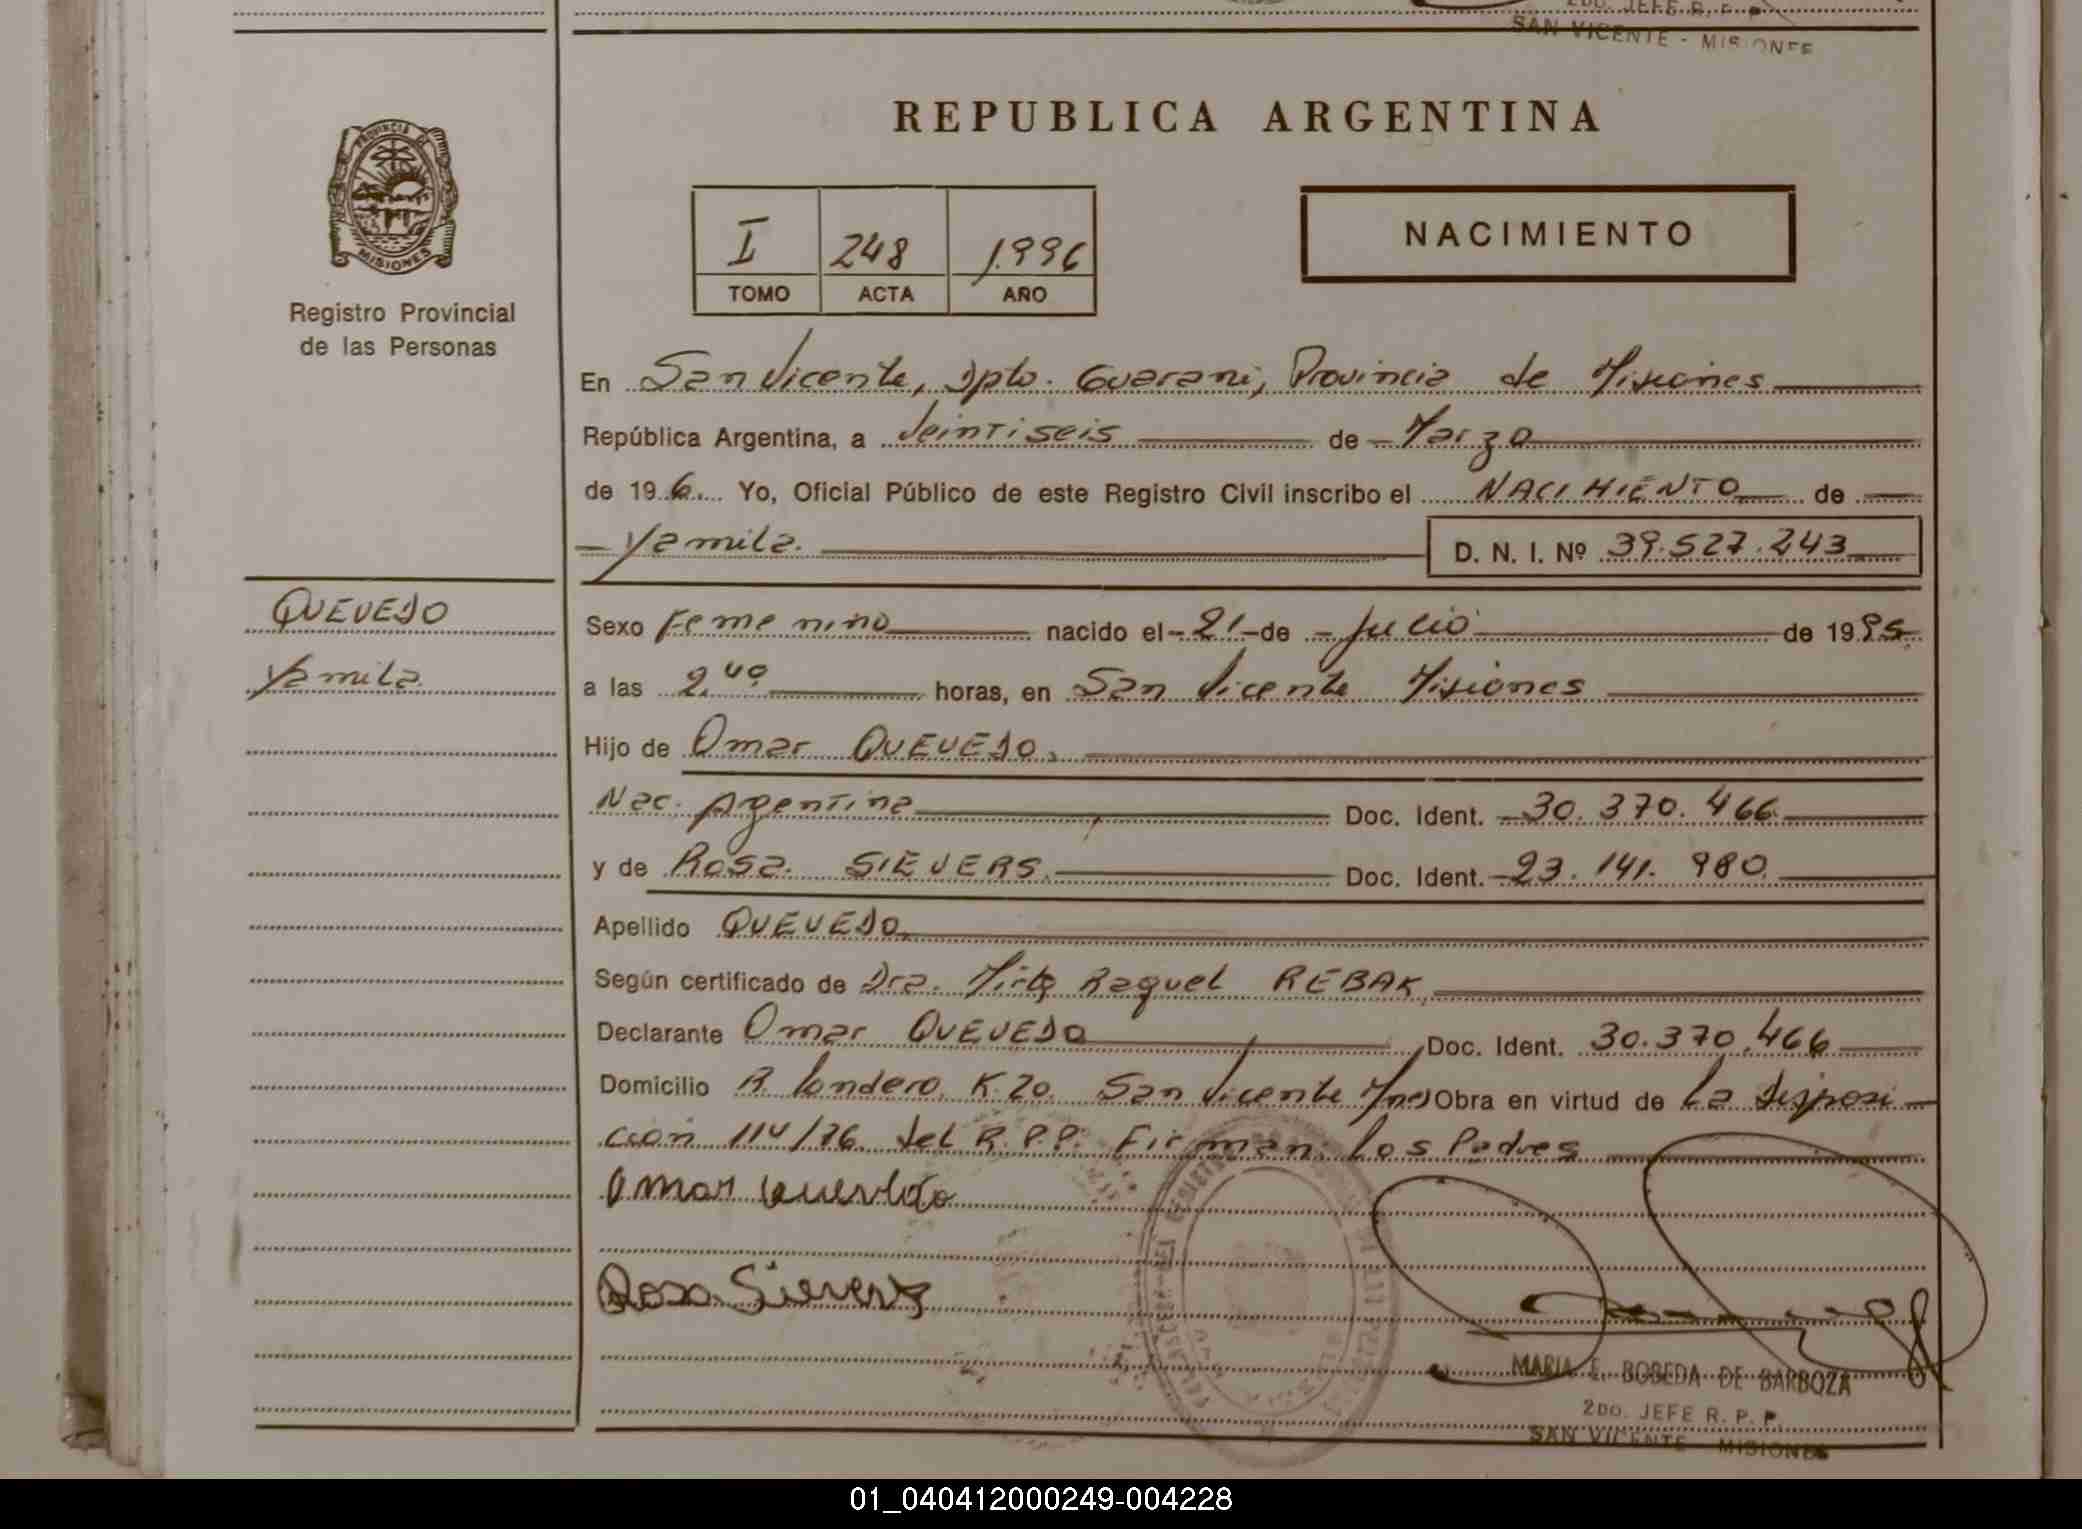 2DO. JEFE R. P. P.
SAN VICENTE - MISIONES
REPUBLICA ARGENTINA
PROVINCIA DE
MISIONES
Registro Provincial
de las Personas
I 248 1.996
TOMO ACTA AÑO
NACIMIENTO
En San Vicente, Dpto. Guarani, Provincia de Misiones
República Argentina, a Veintiseis de Marzo
de 19 6. Yo, Oficial Público de este Registro Civil inscribo el NACIMIENTO de
Yamila. D. N. I. Nº 39.527.243
QUEVEDO
Yamila
Sexo Femenino nacido el 21 de Julio de 1995
a las 2.40 horas, en San Vicente Misiones
Hijo de Omar QUEVEDO.
Nac. Argentina Doc. Ident. 30.370.466
y de Rosa. SIEVERS. Doc. Ident. 23.141.980.
Apellido QUEVEDO.
Según certificado de Dra. Mirta Raquel REBAK
Declarante Omar QUEVEDO Doc. Ident. 30.370.466
Domicilio R. londero. K.20. San Vicente Mnes Obra en virtud de La Disposi-
ción 114/76. del R.P.P. Firman los Padres
Omar Quevedo
Rosa Sievers
MARIA E. BOBEDA DE BARBOZA
2DO. JEFE R. P. P.
SAN VICENTE MISIONES
01_040412000249-004228